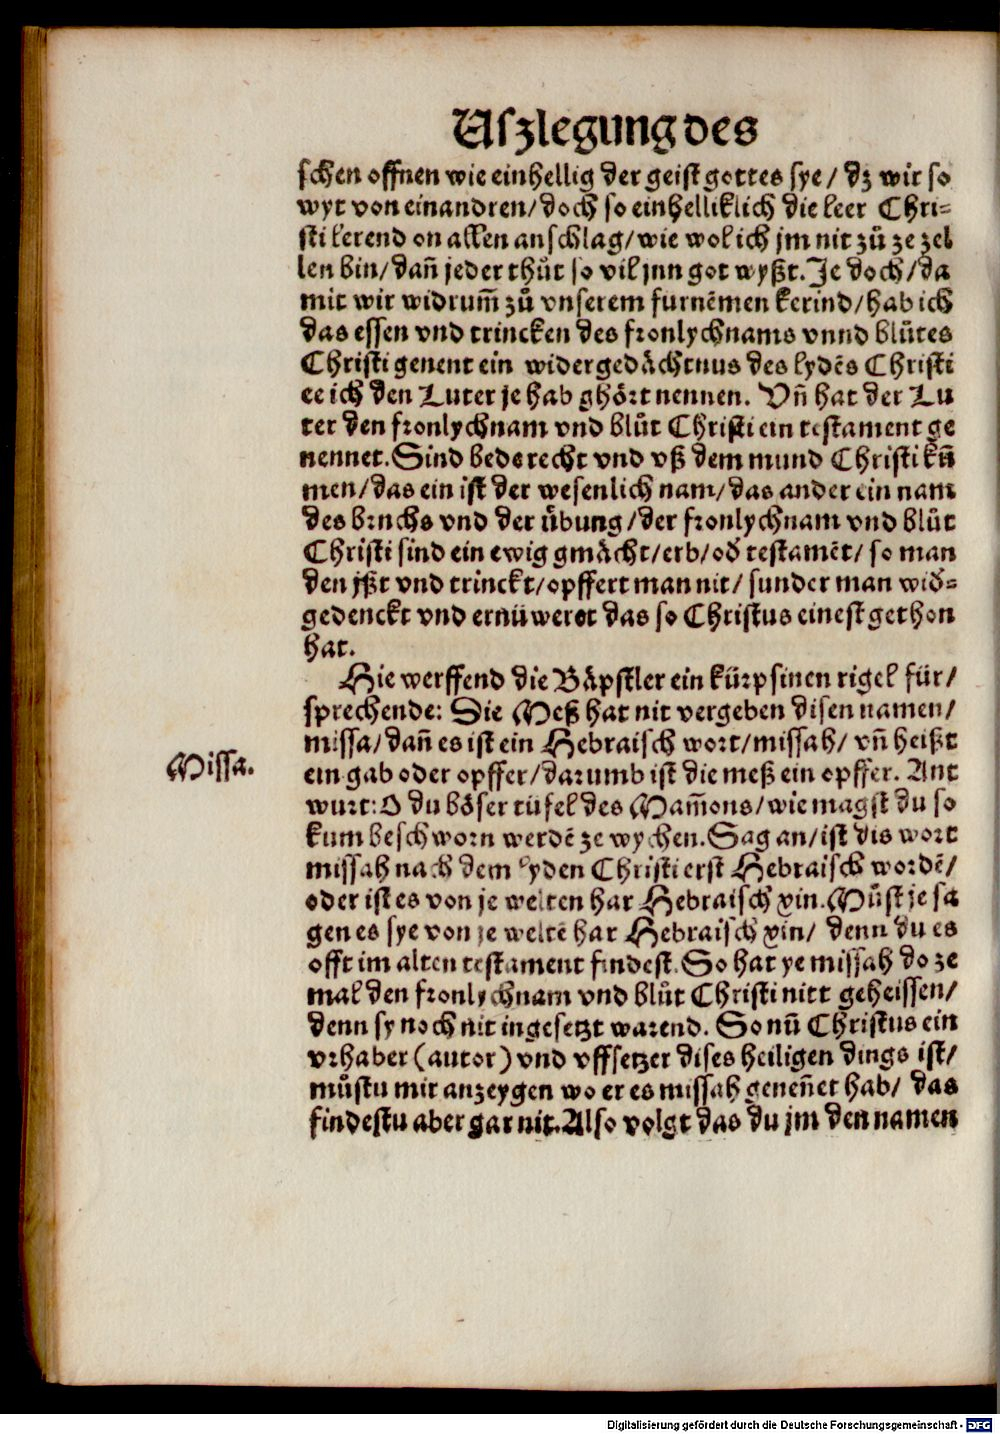 Uſzlegung des
ſchen offnen wie einhellig der geiſt gottes ſye / dz wir ſo
wyt von einandren / doch ſo einhelliklich die leer Chri⸗
ſti lerend on allen anſchlag / wie wol ich jm nit zů ze zel
len bin / dañ jeder thůt ſo vil jnn got wyßt. Je doch / da
mit wir widrum̃ zů vnſerem furnẽmen kerind / hab ich
das eſſen vnd trincken des fronlychnams vnnd blůtes
Chriſti genent ein widergedächtnus des lydẽs Chriſti
ee ich den Luter je hab ghört nennen. Vñ hat der Lu
ter den fronlychnam vnd blůt Chriſti ein teſtament ge
nennet. Sind bede recht vnd vß dem mund Chriſti kũ
men / das ein iſt der weſenlich nam / das ander ein nam
des bruchs vnd der übung / der fronlychnam vnd blůt
Chriſti ſind ein ewig gmächt / erb / od̕ teſtamẽt / ſo man
den yßt vnd trinckt / opffert man nit / ſunder man wid̕⸗
gedenckt vnd ernüweret das ſo Chriſtus eineſt gethon
hat.
Hie werffend die Bäpſtler ein kürpſinen rigel für /
ſprechende: Die Meß hat nit vergeben diſen namen /
miſſa / dañ es iſt ein Hebraiſch wort / miſſah / vñ heißt
ein gab oder opffer / darumb iſt die meß ein opffer. Ant
wurt: O du böſer tüfel des Mam̃ons / wie magſt du ſo
kum beſchworn werdẽ ze wychen. Sag an / iſt dis wort
miſſah nach dem lyden Chriſti erſt Hebraiſch wordẽ /
oder iſt es von je welten har Hebraiſch xin. Můſt je ſa
gen es ſye von je weltẽ har Hebraiſch xin / denn du es
offt im alten teſtament findeſt. So hat ye miſſah do ze
mal den fronlychnam vnd blůt Chriſti nitt geheiſſen /
denn ſy noch nit ingeſetzt warend. So nũ Chriſtus ein
vrhaber (autor) vnd vffſetzer diſes heiligen dings iſt /
můſtu mir anzeygen wo er es miſſah geneñet hab / das
findeſtu aber gar nit. Alſo volgt das du jm den namen
Miſſa.
Digitalisierung gefördert durch die Deutsche Forschungsgemeinschaft - DFG